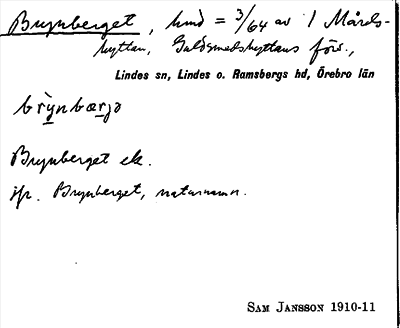 Brynberget, hmd = 3/64 av 1 Mårds-
hyttan, Guldsmedshyttans förs.,
Lindes sn, Lindes o. Ramsbergs hd, Örebro län
brynbærjə
Brynberget ek.
jfr. Brynberget, naturnamn.
SAM JANSSON 1910-11